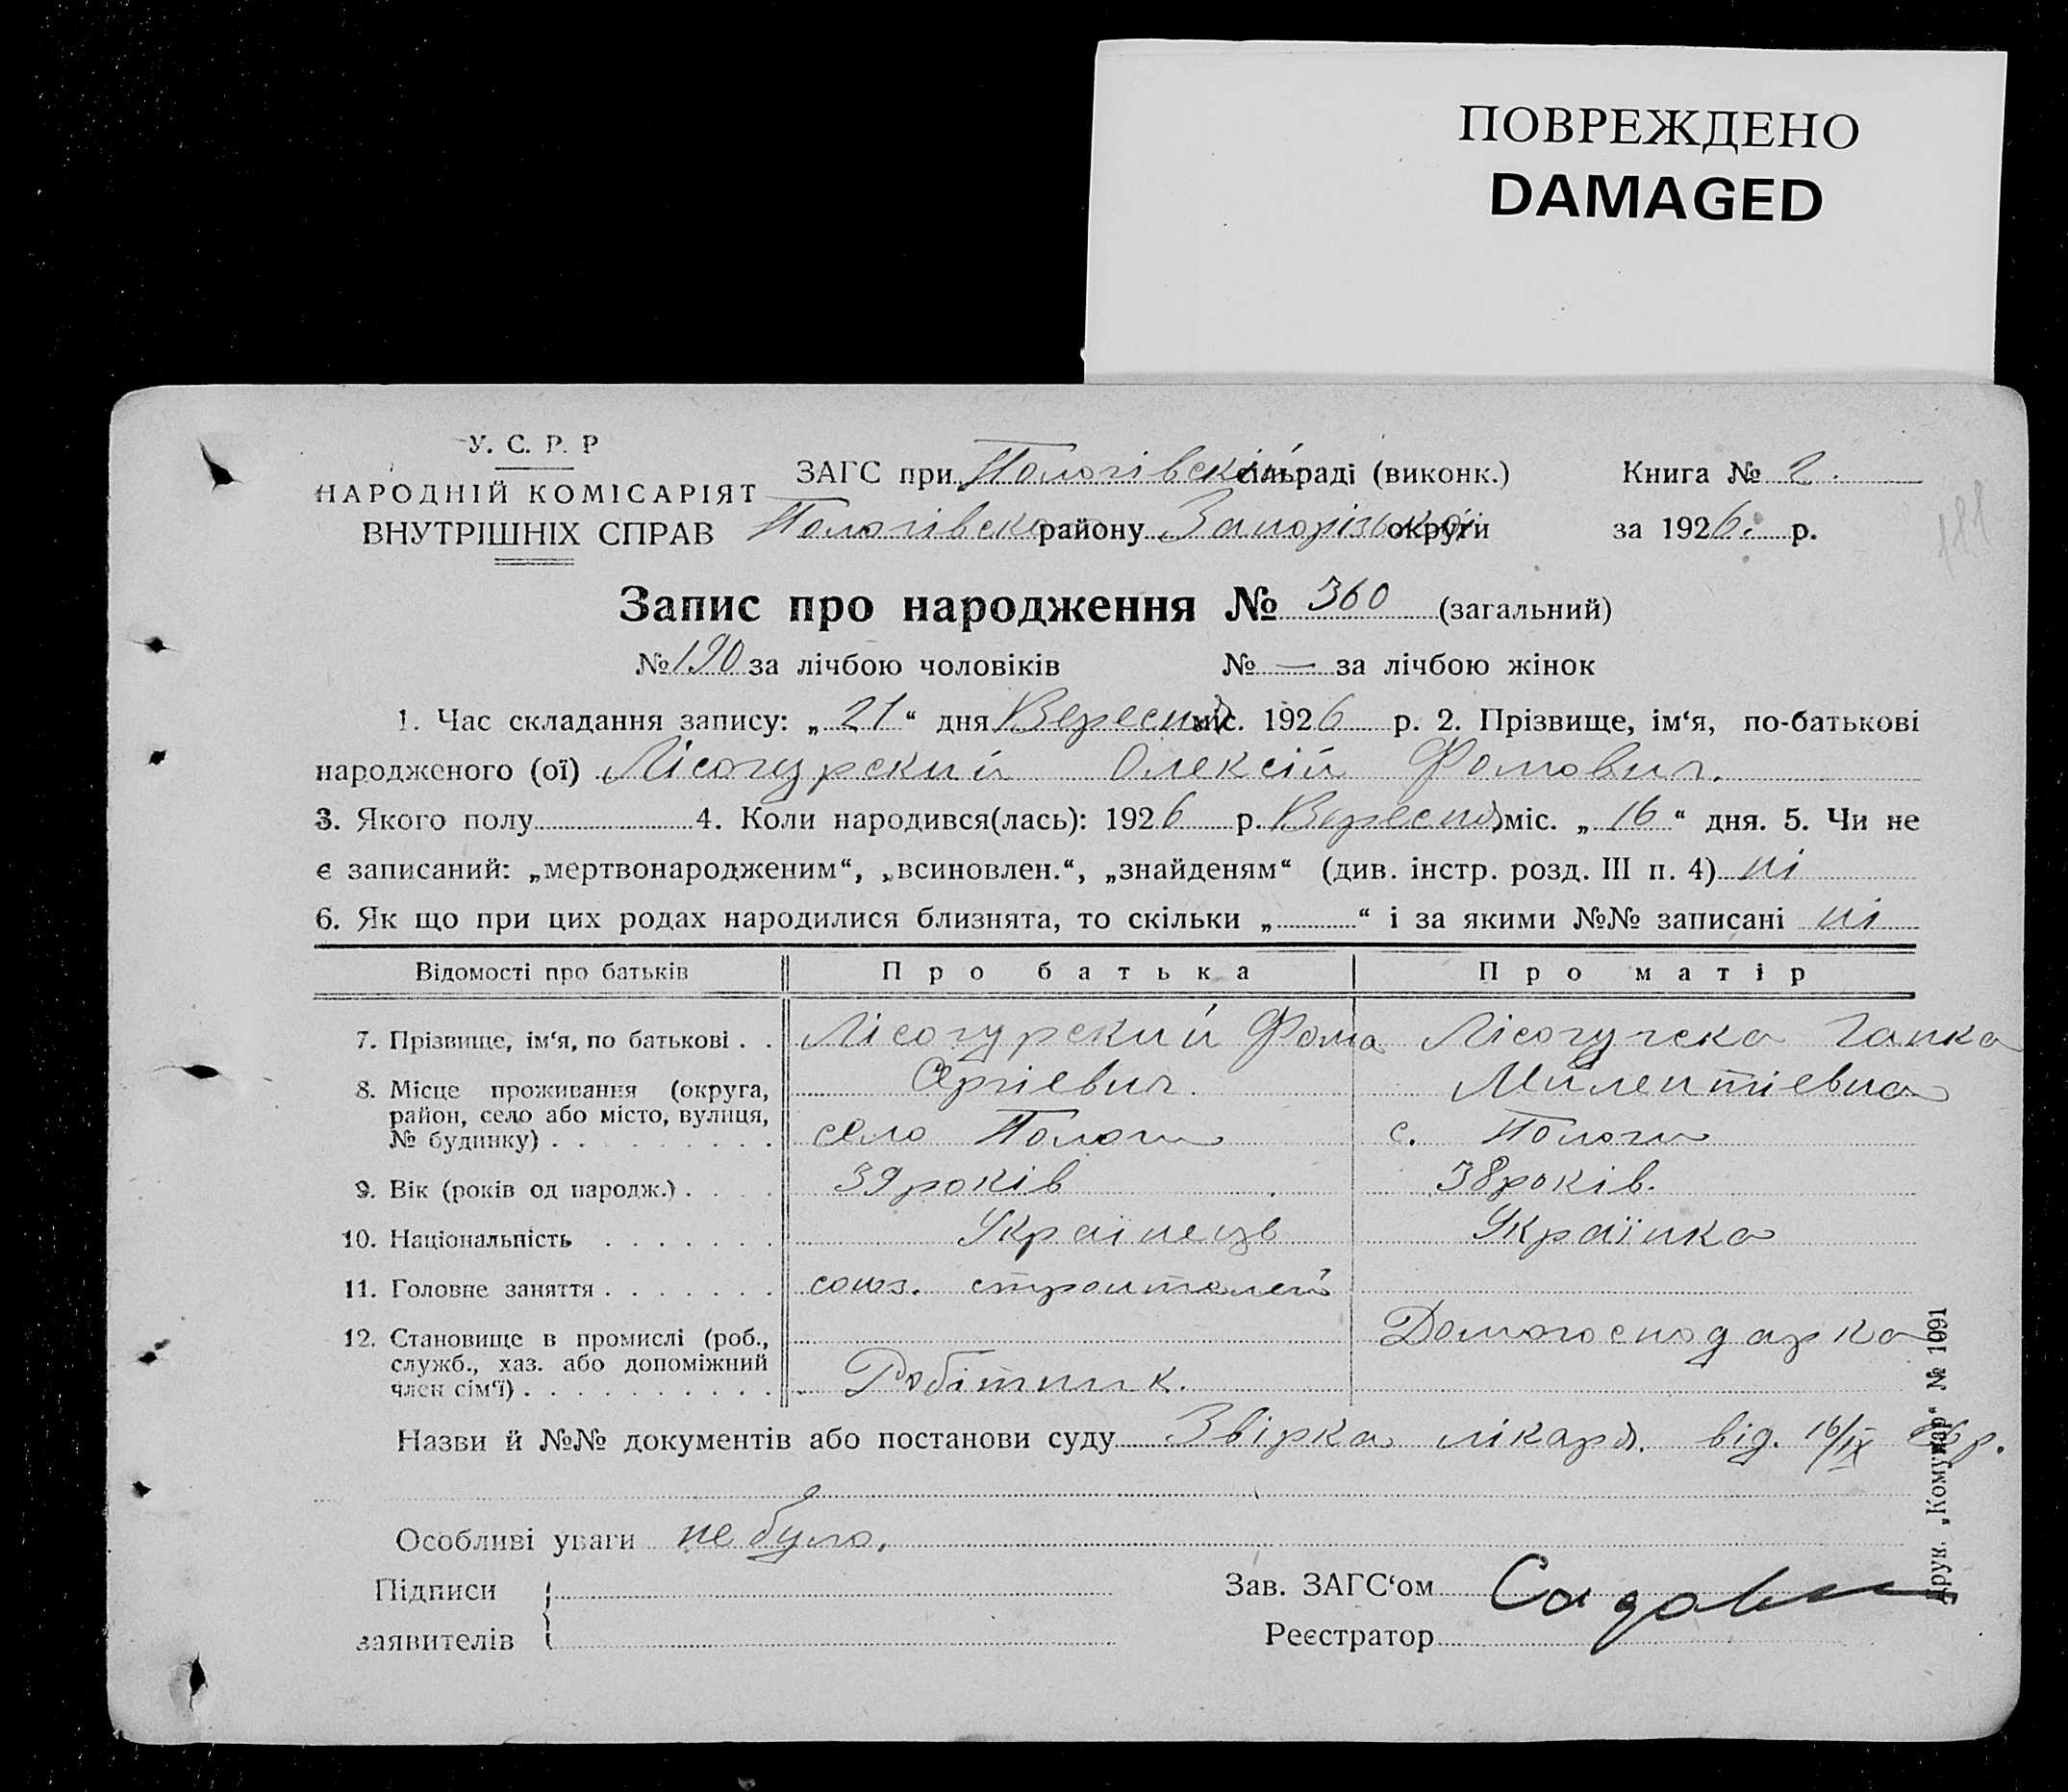 ПОВРЕЖДЕНО
DAMAGED
У. С. Р. Р
НАРОДНІЙ КОМІСАРІЯТ
ВНУТРІШНІХ СПРАВ
ЗАГС при Пологівській сільраді (виконк.) Книга № 2.
Пологівско району Запорізькой округи за 1926. р.
Запис про народження № 360 (загальний)
№ 190 за лічбою чоловіків № — за лічбою жінок
1. Час складання запису: „ 21 “ дня Вересня міс. 1926 р. 2. Прізвище, ім‘я, по-батькові
народженого (ої) Лісогурский Олексій Фомович.
3. Якого полу 4. Коли народився(лась): 1926 р. Вересня міс. „ 16 “ дня. 5. Чи не
є записаний: „мертвонародженим“, „всиновлен.“, „знайденям“ (див. інстр. розд. III п. 4) ні
6. Як що при цих родах народилися близнята, то скільки „ “ і за якими №№ записані ні
Відомості про батьків Про батька Про матір
7. Прізвище, ім‘я, по батькові . . Лісогурский Фома Лісогурска Гапка
8. Місце проживання (округа, Сергіевич. Милентіевна
район, село або місто, вулиця,
№ будинку) . . . . . . . . . село Пологи с. Пологи
9. Вік (років од народж.) . . . . 39 років 38 років.
10. Національність . . . . . . . Українець Українка
11. Головне заняття . . . . . . . союз. строителей
12. Становище в промислі (роб., Домогосподарка
служб., хаз. або допоміжний
член сім‘ї) . . . . . . . . . . . Робітник.
Назви й №№ документів або постанови суду Звірка лікаря. від. 16/IX 26 р.
Особливі уваги не було.
Підписи
заявителів
Зав. ЗАГС‘ом
Реєстратор
Друк. „Комунар“ № 1091